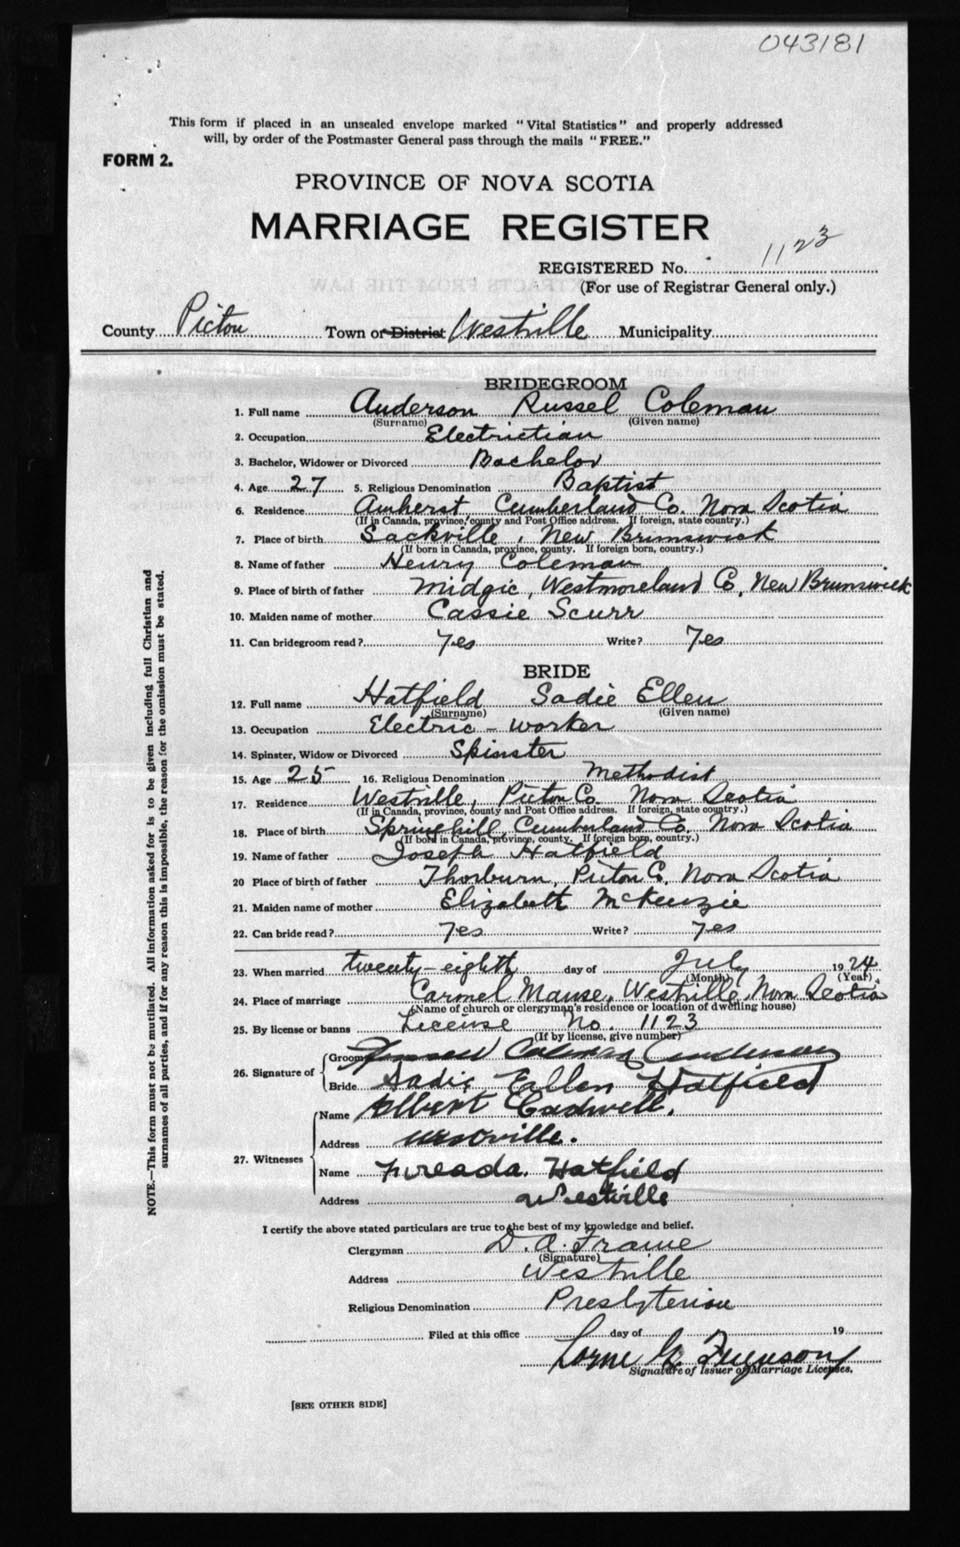 043181
This form if placed in an unsealed envelope marked "Vital Statistics" and properly addressed
will, by order of the Postmaster General pass through the mails "FREE."
FORM 2.
PROVINCE OF NOVA SCOTIA
MARRIAGE REGISTER
REGISTERED No. 1123
(For use of Registrar General only.)
County Pictou Town or District Westville Municipality
BRIDEGROOM
1. Full name Anderson Russel Coleman
(Surname) (Given name)
2. Occupation Electrictian
3. Bachelor, Widower or Divorced Bachelor
4. Age 27 5. Religious Denomination Baptist
6. Residence Amherst Cumberland Co. Nova Scotia
(If in Canada, province, county and Post Office address. If foreign, state country.)
7. Place of birth Sackville, New Brunswick
(If born in Canada, province, county. If foreign born, country.)
8. Name of father Henry Coleman
9. Place of birth of father Midgic, Westmoreland Co, New Brunswick
10. Maiden name of mother Cassie Scurr
11. Can bridegroom read? Yes Write? Yes
BRIDE
12. Full name Hatfield Sadie Ellen
(Surname) (Given name)
13. Occupation Electric - worker
14. Spinster, Widow or Divorced Spinster
15. Age 25 16. Religious Denomination Methodist
17. Residence Westville, Pictou Co. Nova Scotia
(If in Canada, province, county and Post Office address. If foreign, state country.)
18. Place of birth Springhill, Cumberland Co, Nova Scotia
(If born in Canada, province, county. If foreign born, country.)
19. Name of father Joseph Hatfield
20 Place of birth of father Thorburn, Pictou C. Nova Scotia
21. Maiden name of mother Elizabeth McKenzie
22. Can bride read? Yes Write? Yes
23. When married twenty-eighth day of July 1924
(Month) (Year)
24. Place of marriage Carmel Manse, Westville, Nova Scotia
(Name of church or clergyman's residence or location of dwelling house)
25. By license or banns License No. 1123
(If by license, give number)
26. Signature of
Groom Coleman Anderson
Bride Sadie Ellen Hatfield
27. Witnesses
Name Elbert Cadwell.
Address Westville.
Name Hatfield
Address Westville
I certify the above stated particulars are true to the best of my knowledge and belief.
Clergyman D. A. Frame
(Signature)
Address Westville
Religious Denomination Presbyterian
Filed at this office day of 19
Lorne G. Ferguson
Signature of Issuer of Marriage Licenses.
[SEE OTHER SIDE]
NOTE.—This form must not be mutilated. All information asked for is to be given including full Christian and
surnames of all parties, and if for any reason this is impossible, the reason for the omission must be stated.